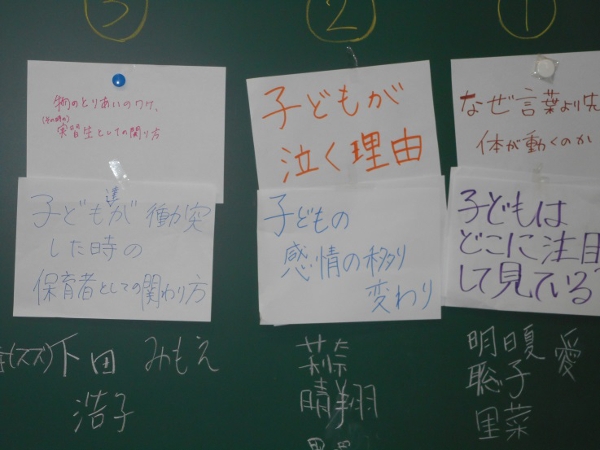 ③
物のとりあいのワケ、
(その時の)
実習生としての関り方
子ども達が衝突
した時の
保育者としての関わり方
(スズ)下田 みもえ
浩子
②
子どもが
泣く理由
子どもの
感情の移り
変わり
莉奈
晴翔
①
なぜ言葉より先
体が動くのか
子どもは
どこに注目
して見ている?
明日夏 愛
聡子
里菜